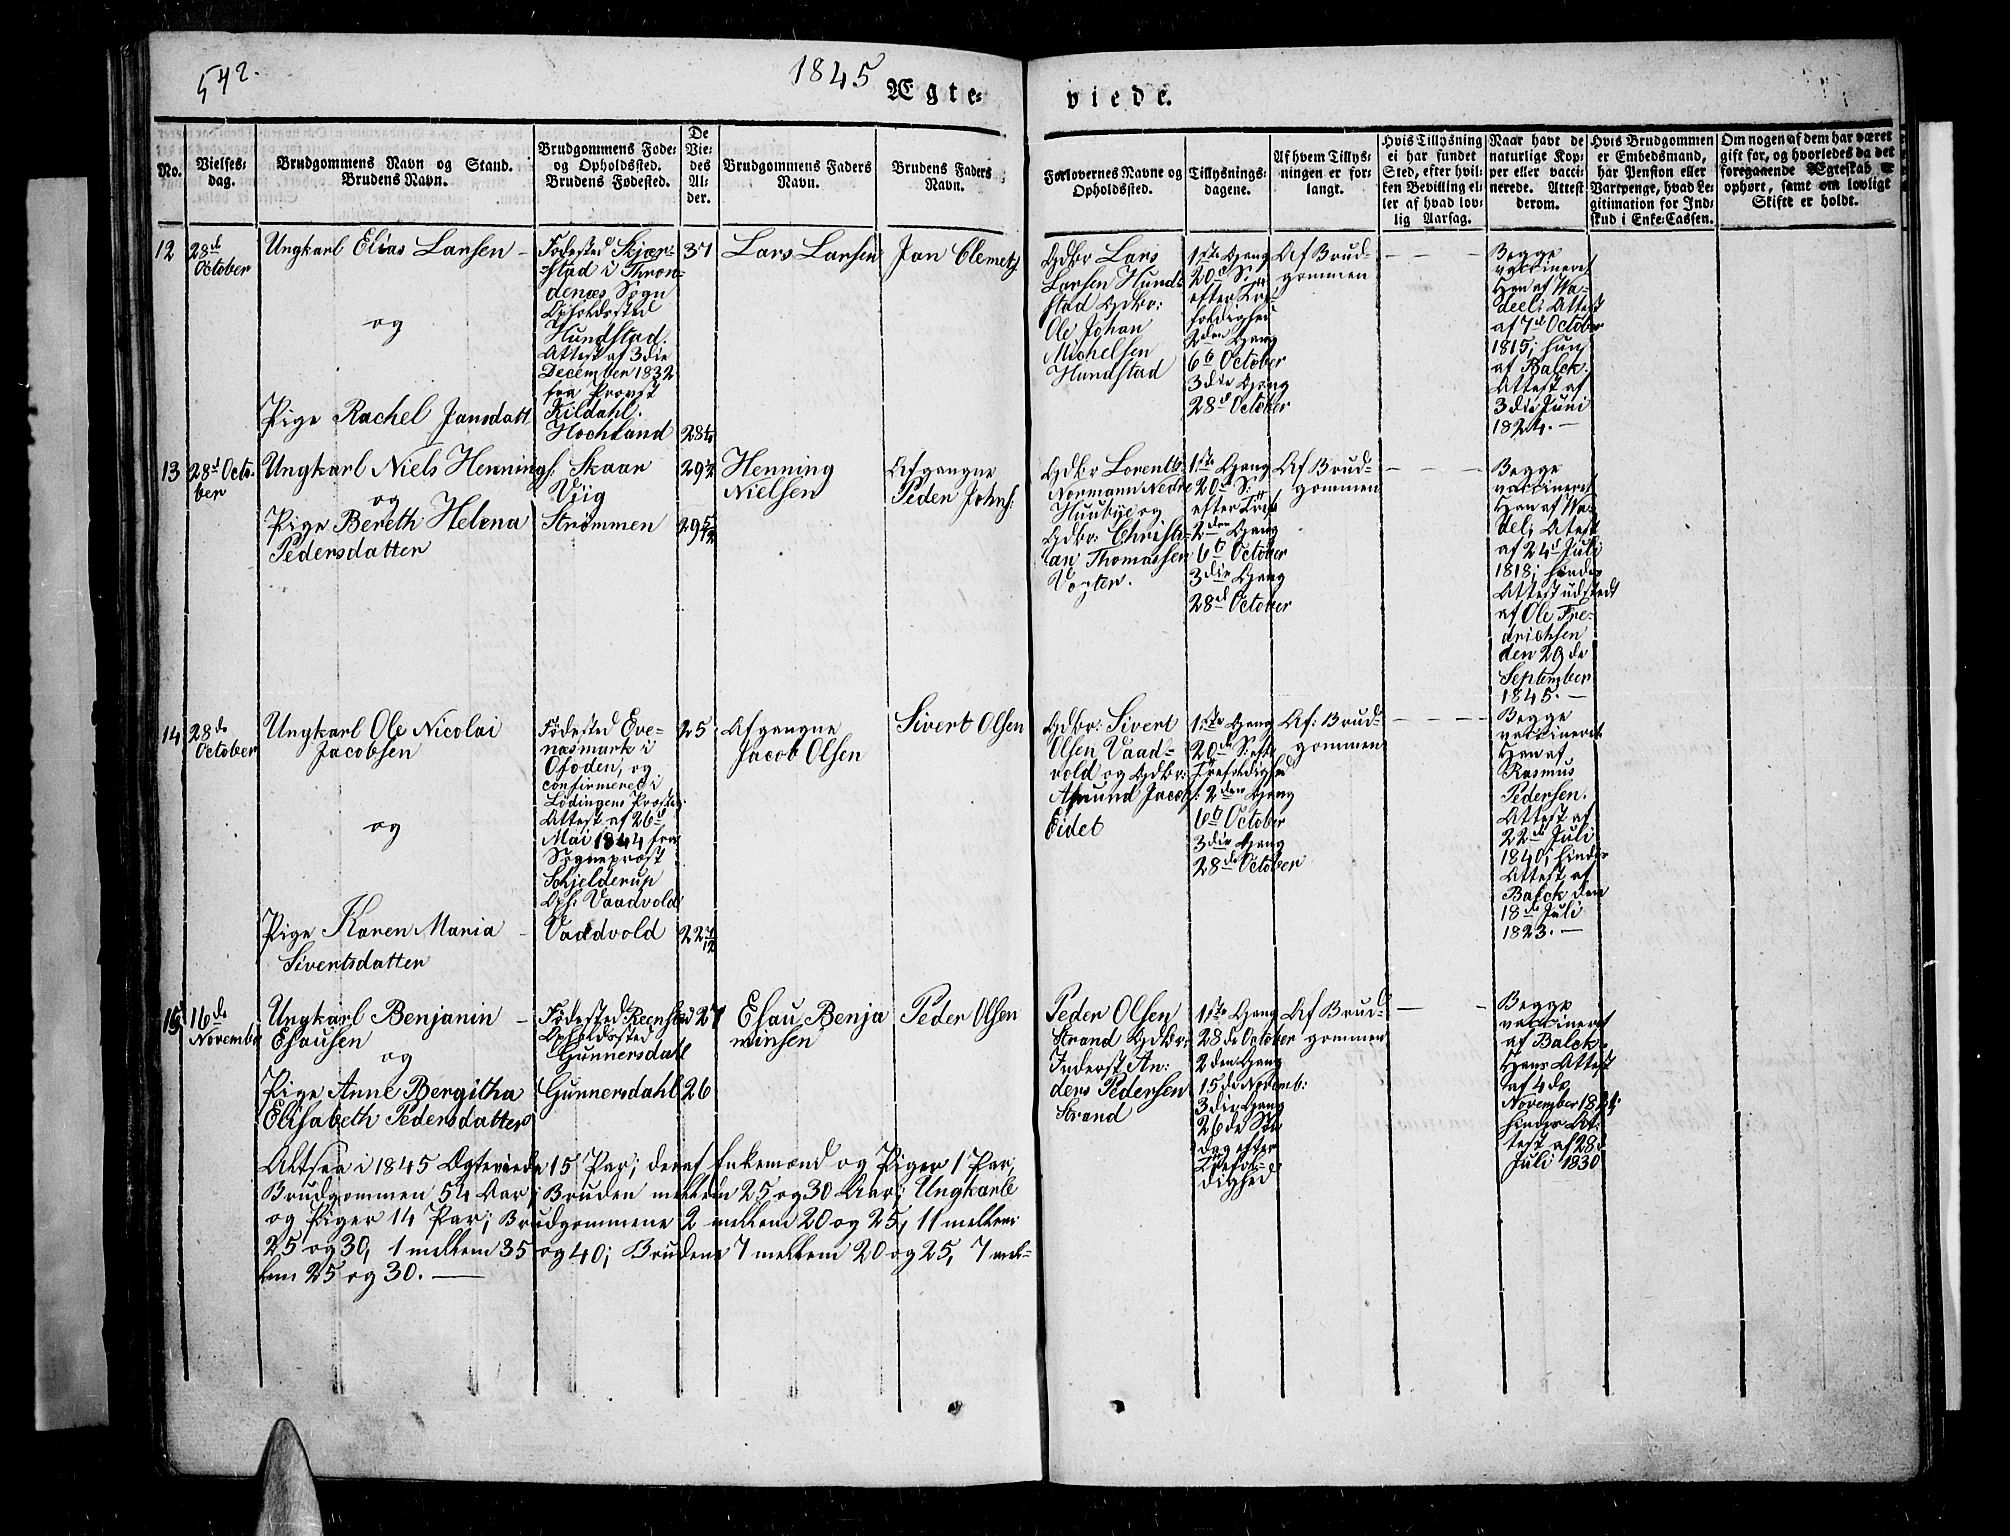 542.
1845
Ægte=
viede.
No.
Vielses=
dag.
Brudgommens Navn og Stand.
Brudens Navn.
Brudgommens Føde=
og Opholdssted.
Brudens Fødested.
De
Vie=
des
Al=
der.
Brudgommens Faders
Navn.
Brudens Faders
Navn.
Forlovernes Navne og
Opholdssted.
Tillysnings=
dagene.
Af hvem Tillys=
ningen er for=
langt.
Hvis Tillysning
ei har fundet
Sted, efter hvil=
ken Bevilling el=
ler af hvad lov=
lig Aarsag.
Naar havt de
naturlige Kop=
per eller vacci=
nerede. Attest
derom.
Hvis Brudgommen
er Embedsmand,
har Pension eller
Vartpenge, hvad Le=
gitimation for Ind=
skud i Enke=Cassen.
Om nogen af dem har været
gift før, og hvorledes da det
foregaaende Ægteskab er
ophørt, samt om lovligt
Skifte er holdt.
12
28de
October
Ungkarl Elias Larsen -
og
Pige Rachel Jansdatt
Fødested Skjær=
=stad i Thron=
denæs Sogn
Opholdssted
Hundstad.
Attest af 3die
December 1832
fra Provst
Kildahl.
Hochland
37
28¼
Lars Larsen
Jan Clemets
Gdbr Lars
Larsen Hund=
stad Gdbr:
Ole Johan
Michelsen
Hundstad
1ste Gang
20de S:
efter Tre=
foldighed
2den Gang
6te October
3die Gang
28d October
Af Brud=
gommen
Begge
vaccineret
Han af Wa=
deel; Attest
af 7de October
1815; hun
af Balck.
Attest af
3die Juni
1824. —
13
28d Octo=
ber
Ungkarl Niels Hennings:
og
Pige Bereth Helena
Pedersdatter
Skaar
Viig
Strømmen
29½
29 5/12
Henning
Nielsen
Afgangne
Peder Johns:
Gdbr Lorents
Normann Nedre
Huubye og
Gdbr: Christi=
an Thomassen
Vogter.
1ste Gang
20de S:
efter Tref
2den Gang
6te October
3die Gang
28d October
Af Brud=
gommen
Begge
vaccineret
Han af Wa=
del; Attest
af 24d Juli
1818; hindes
Attest udstedt
af Ole Fre=
drichsen
den 29de
September
1845. —
14
28de
October
Ungkarl Ole Nicolai
Jacobsen
og
Pige Karen Maria -
Sivertsdatter
Fødested Eve=
næsmark i
Ofoden, og
confirmeret i
Lødingens Præsteg:
Attest af 26d
Mai 1844 fra
Sognepræst
Schjelderup
Oph: Vaadvold
Vaadvold
25
Afgangne
Jacob Olsen
Sivert Olsen
Gdbr: Sivert
Olsen Vaad=
vold og Gdbr:
Amund Jacobs:
Eidet
1ste Gang
20de S: eft
Trefoldighed
2den Gang
6te October
3die Gang
28de October
Af: Brud=
gommen
Begge
vaccineret
Han af
Rasmus
Pedersen.
Attest af
22de Juli
1840, hindes
Attest af
Balck den
18de Juli
1823. —
15
16de
November
Ungkarl Benjamin -
Esausen
og
Pige Anne Bergitha
Elisabeth Pedersdatter
Fødested Reenstad
Opholdssted
Gunnersdahl
Gunnersdahl
27
26
Esau Benja
minsen
Peder Olsen
Peder Olsen
Strand Gdbr:
Inderst An:
ders Pedersen
Strand
1ste Gang
28de October
2den Gang
15de Novemb:
3die Gang
26de Søn
dag efter
Trefol=
dighed
Af Brud=
gommen
Begge
vaccineret
af Balck
Hans Attest
af 4de
November
hindes At:
test af 28d
Juli 1830
Altsaa i 1845 Ægteviede 15 Par; deraf Enkemænd og Piger 1 Par,
Brudgommen 54 Aar; Bruden mellem 25 og 30 Aar; Ungkarle
og Piger 14 Par; Brudgommene 2 mellem 20 og 25, 11 mellem
25 og 30, 1 mellem 35 og 40; Brudene 7 mellem 20 og 25, 7 mel=
lem 25 og 30. —